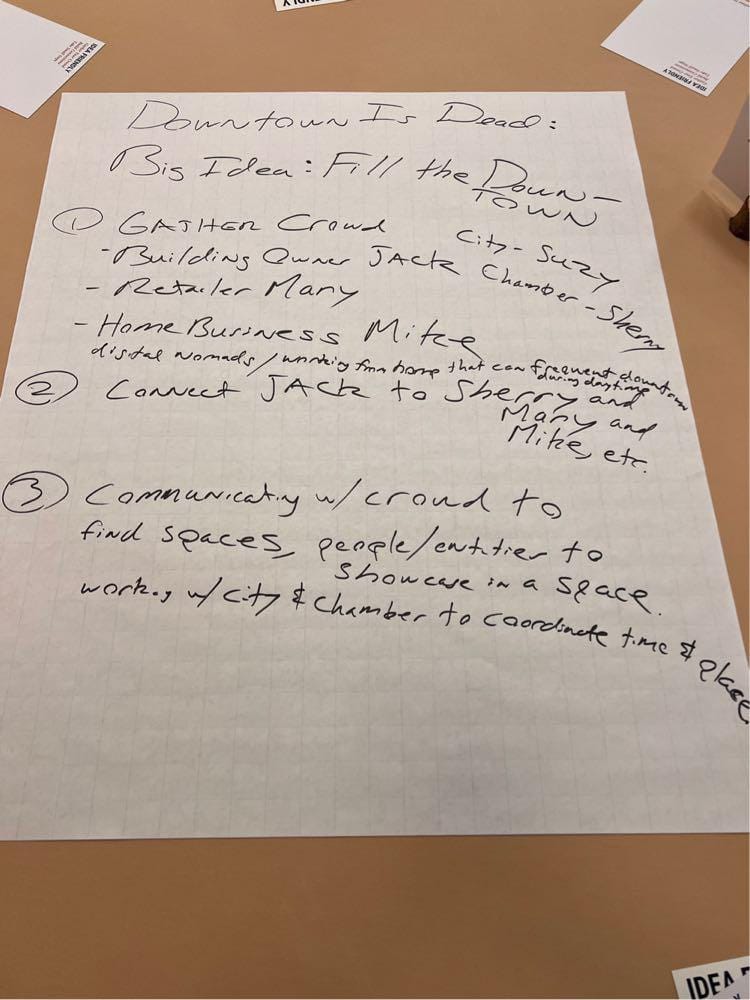 IDEA FRIENDLY
IDEA FRIENDLY
Downtown Is Dead:
Big Idea: Fill the Down-
TOWN
① GATHER Crowd
City - Suzy
- Building Owner JACK
Chamber - Sherry
- Retailer Mary
- Home Business Mike
digital nomads / working from home that can frequent downtown
during daytime
② Connect JACK to Sherry and
Mary and
Mike, etc.
③ Communicating w/ crowd to
find spaces, people/entities to
showcase in a space.
working w/ city & chamber to coordinate time & place
IDEA F